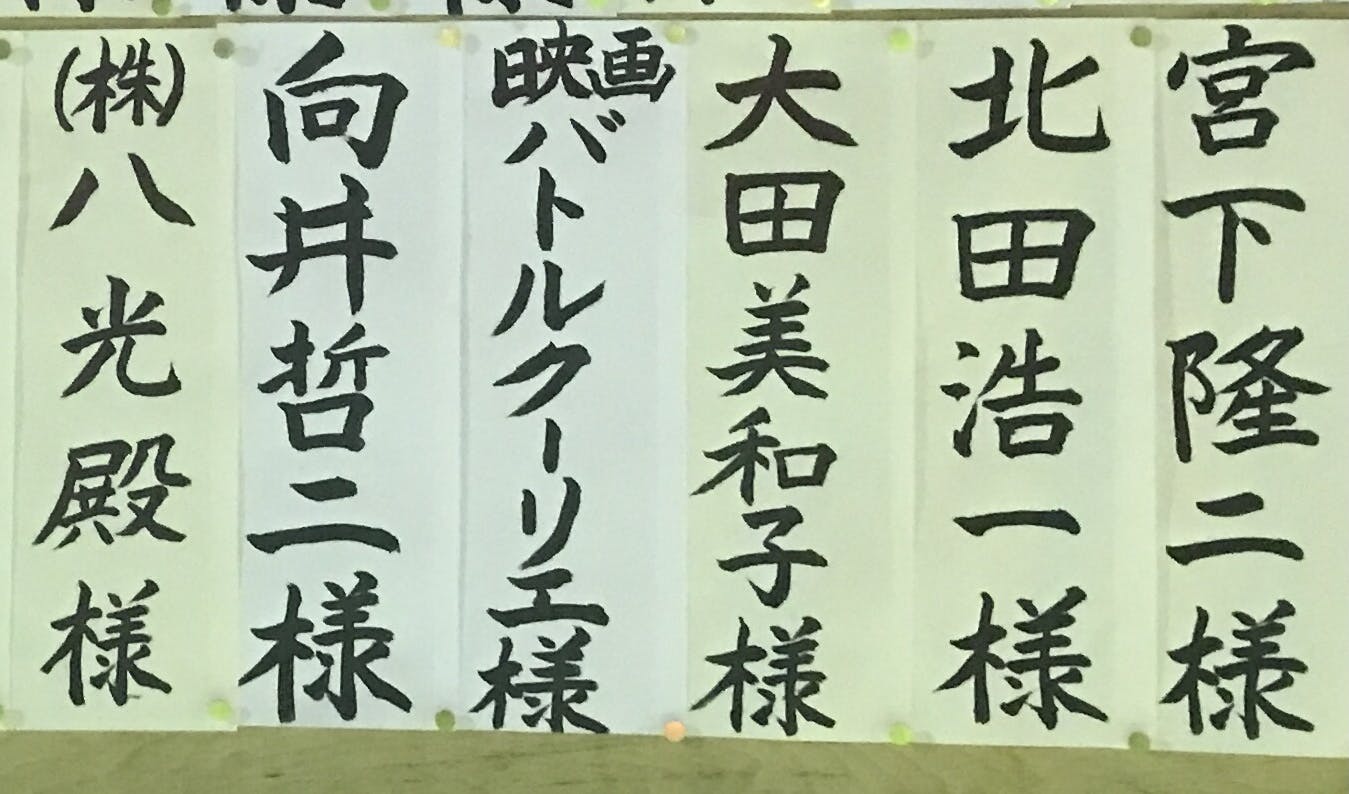 宮下隆二様
北田浩一様
大田美和子様
映画バトルクーリエ様
向井哲二様
(株)八光殿様